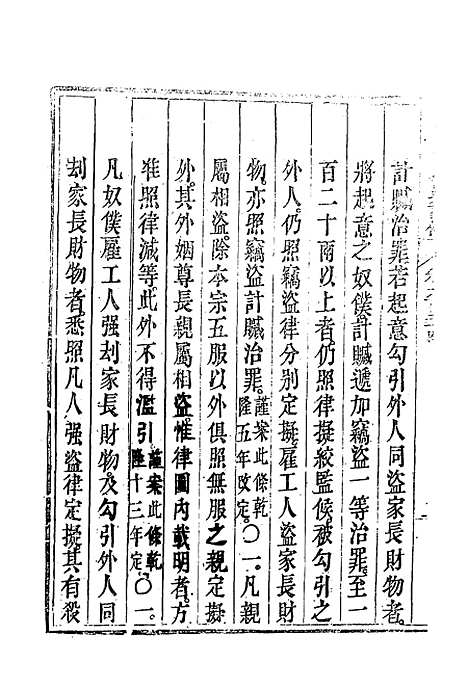 計贓治罪若起意勾引外人同盜家長財物者
將起意之奴僕計贓遞加竊盜一等治罪至一
百二十兩以上者仍照律擬絞監候被勾引之
外人仍照竊盜律分別定擬雇工人盜家長財
物亦照竊盜計贓治罪謹案此條乾隆五年改定〇一凡親
屬相盜除本宗五服以外俱照無服之親定擬
外其外姻尊長親屬相盜惟律圖內載明者方
准照律減等此外不得濫引謹案此條乾隆十三年定〇一
凡奴僕雇工人强刦家長財物及勾引外人同
刦家長財物者悉照凡人强盜律定擬其有殺